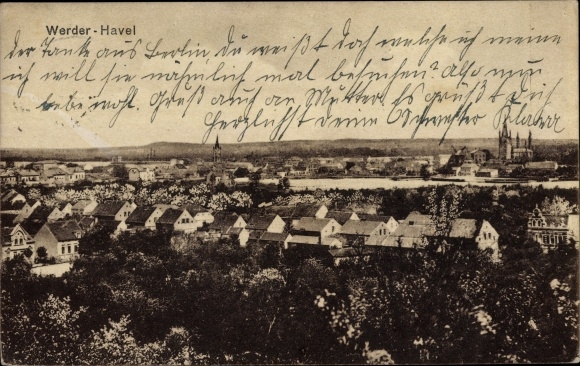 Werder-Havel
der Tante aus Berlin, Du weißt doch welche ich meine
ich will sie nähmlich mal besuchen? Also nun
lebe wohl. Gruß auch an Mutter. Es grüßt Dich
herzlichst deine Schwester Klara